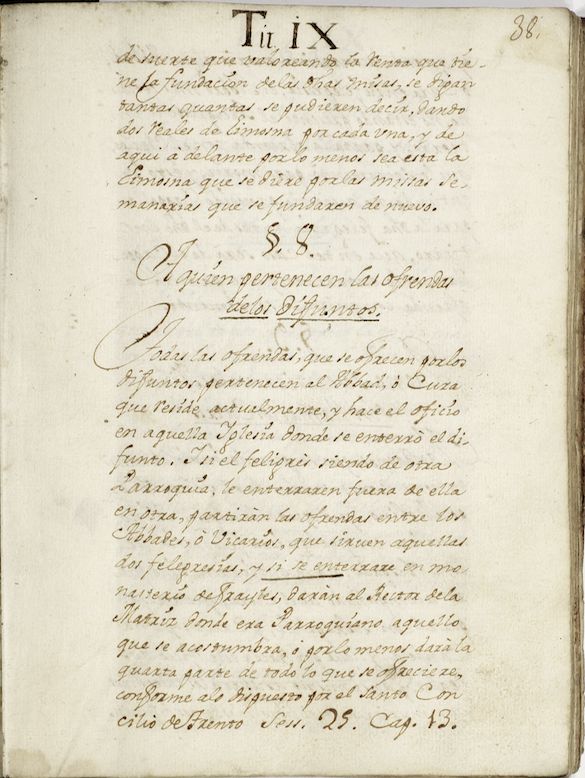 Tit IX
38.
de suerte que valoreando la renta que tie-
ne la fundacion delas dhas misas, se digan
tantas quantas se pudieren decir, dando
dos reales de Limosna por cada vna, y de
aqui à delante por lo menos sea esta la
Limosna que se diere por las missas se-
manarias que se fundaren de nuevo.
§. 8.
A quien pertenecen las ofrendas
delos Difuntos.
Todas las ofrendas, que se ofrecen por los
difuntos pertenecen al Abbad, ò Cura
que reside actualmente, y hace el oficio
en aquella Iglesia donde se enterrò el di-
funto. I si el feligrès siendo de otra
Parroquia, le enterraren fuera de ella
en otra, partiràn las ofrendas entre los
Abbades, ò Vicarios, que sirven aquellas
dos felegresias, y si se enterrare en mo-
nasterio de Frayles, daràn al Rector dela
Matriz donde era Parroquiano aquello
que se acostumbra, ò por lo menos darà la
quarta parte de todo lo que se ofreciere,
conforme alo dispuesto por el Santo Con
cilio de Trento Sess. 25. Cap. 13.